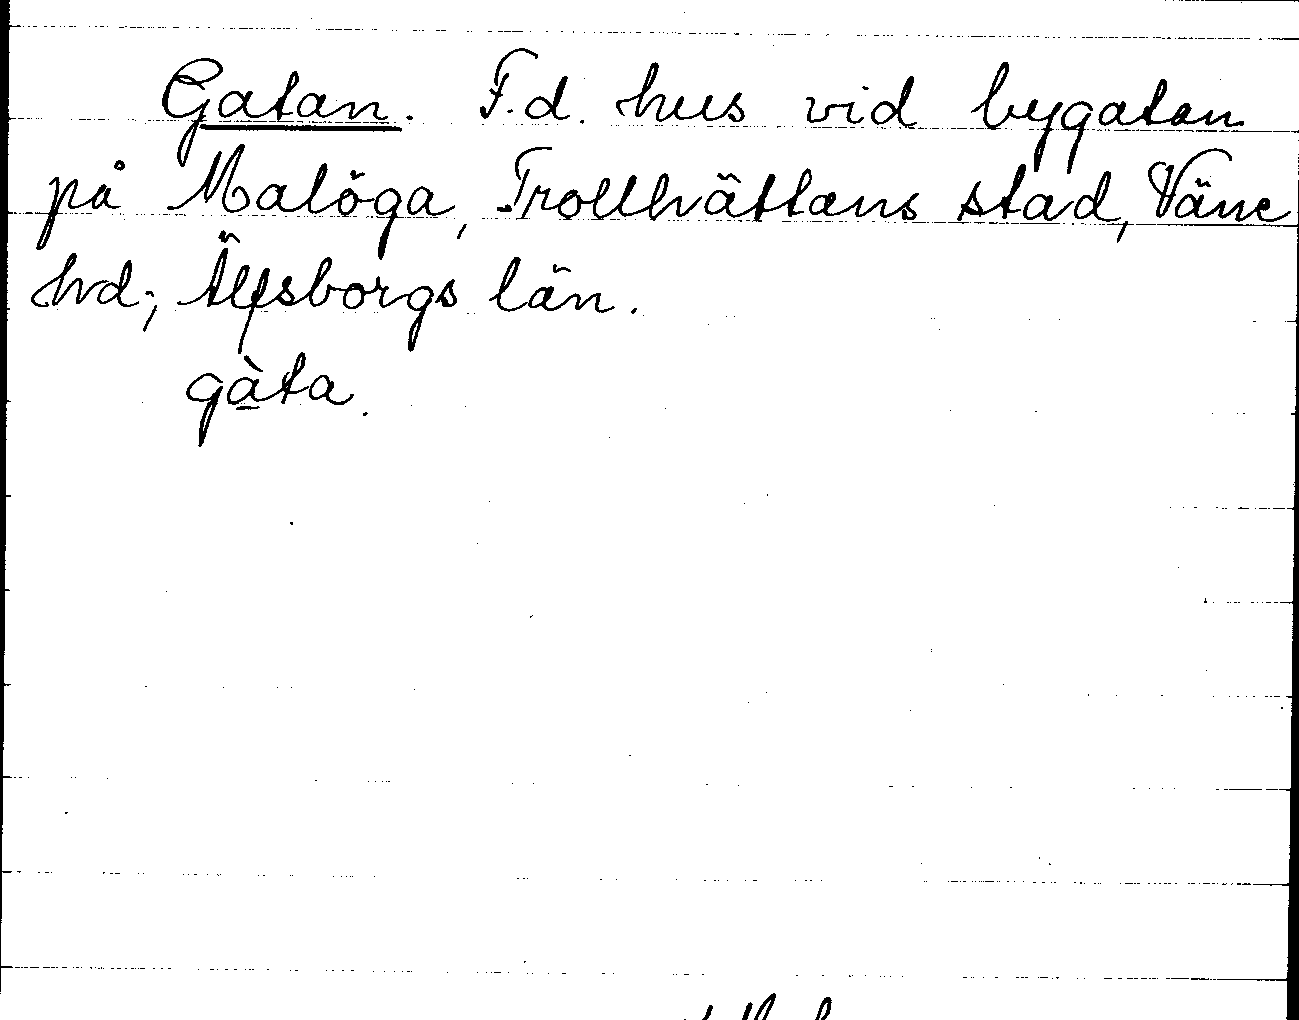 Gatan. F.d. hus vid bygatan
på Malöga, Trollhättans stad, Väne
hd; Älfsborgs län.
gàta.